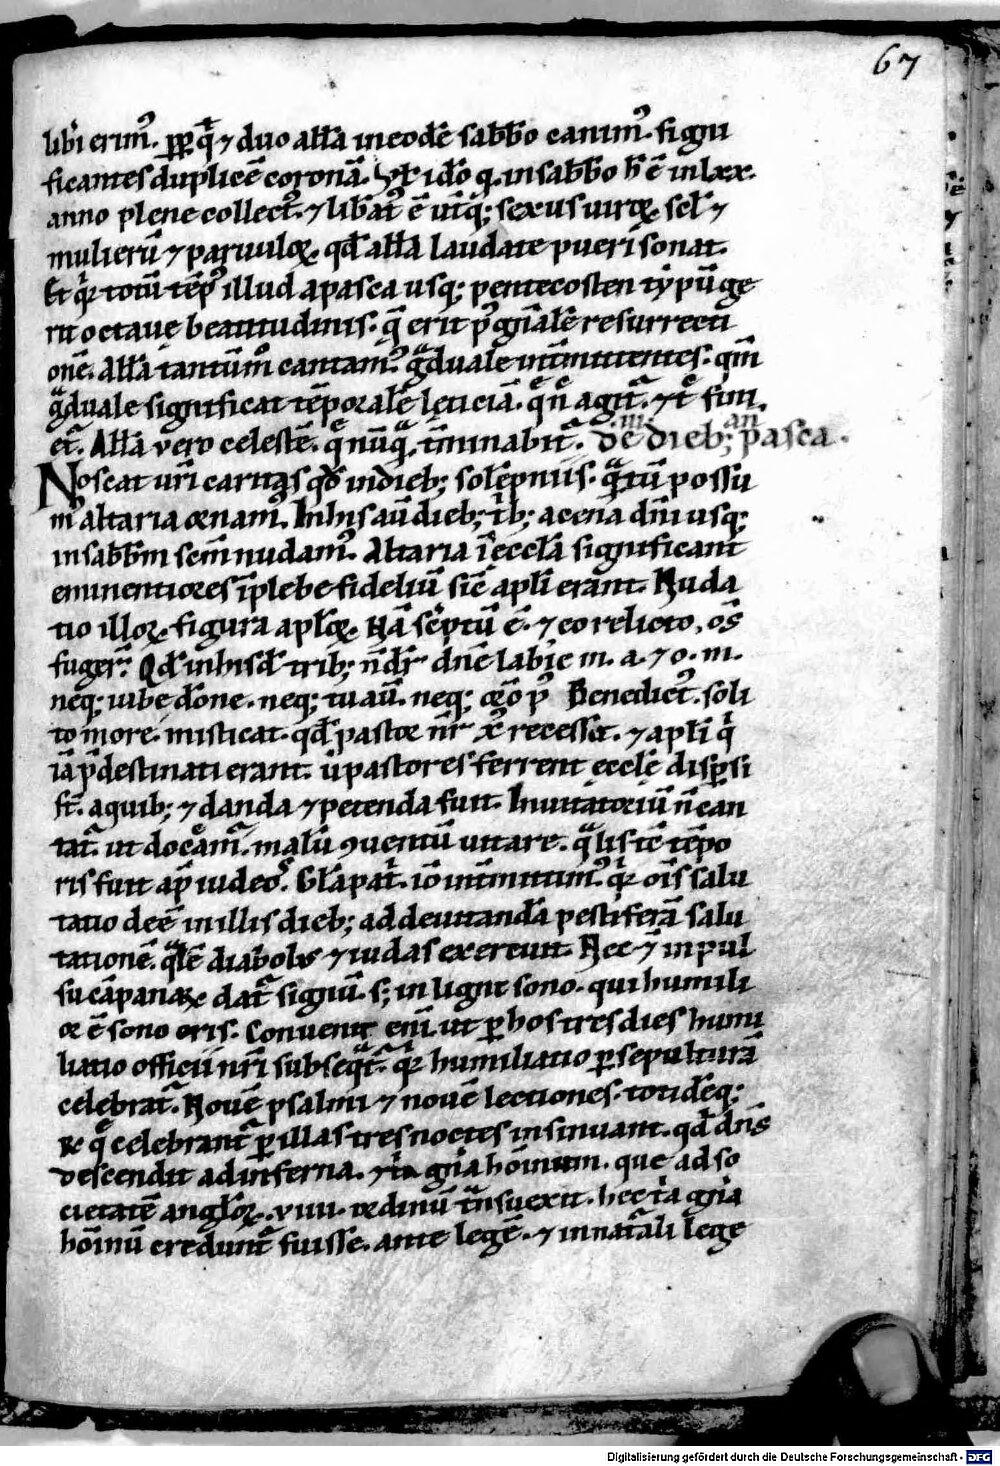 67
lib̾i erim᾽. ꝓpt̾q̄ ⁊ duo all̄a in eodē sab̄bo canim᾽. signi
ficantes duplicē coronā. Vel̄ ido q. in sab̄bo h̄ ē in lxx.
anno plene collect᾽. ⁊ lib̾at᾽ ē ut̾q; sexus uiroꝝ. scl̄ ⁊
mulierū ⁊ paruuloꝝ. qd̄ all̄a laudate pueri sonat.
Et q̾ totū tēp᾽ illud a pasca usq; pentecosten tẏpū ge
rit octaue beatitudinis. q̄ erit ī gn̄ali resurrecti
onē. All̄a tantūm cantam᾽. gͣduale int̾mittentes. qm̄
gͣduale significat tēporalē lęticiā. agit᾽. fini
et᾽. All̄a vero celestē. q̄ nūqͣ t̾minabit᾽. de .iii. dieb; an pasca.
Noscat ur̄i caritas qd̄ in dieb; solēpniis. qͣtū possu
m᾽ altaria ornam᾽. In his aū dieb; t̾b; a cena dn̄i usq;
in sab̄bm sem᾽ nudam᾽. Altaria ī eccl̄a significant
eminentiores ī plebe fideliū sic̄ apl̄i erant. Nuda
tio illoꝝ. figura apl̄oꝝ. Nā sc̾ptū ē. ⁊ eo relicto, oſ̄
fuger̄. Qd̄ in his d̄ trib; n̄ dr̄ dn̄e labie m. a. ⁊ o. m.
neq; iube done. neq; tu aū. neq; or̄o p᾽ Benedict᾽. soli
to more. misticat. qd̄ pastor nr̄ xc̄ recessit. ⁊ apl̄i q̾
iā p̄destinati erant. ut pastores ferrent ęccl̄ę disꝑsi
st̄. a quib; ⁊ danda ⁊ petenda fuit. Inuitatoriū n̄ can
tat᾽. ut doceam᾽. malū ꝯuentū uitare. qͣlis tē tēpo
ris fuit ap̄ iudeos. Gl̄a pat̾. iō int̾mittim᾽. q̾ oīs salu
tatio deē in illis dieb; ad deuitandā pestiferā salu
tationē. qͣlē diabolus ⁊ iudas exercuit. Nec ē in pul
su cāpanaꝝ dat᾽ signū. s; in ligni sono. qui humili
or ē sono ęris. Conuenit enī. ut ꝑ hos tres dies humi
liatio officii nr̄i subseqͣt᾽. q̾ humiliatio ꝑ sepulturā
celebrat᾽. Nouē psalmi ⁊ nouē lectiones. totidēq;
℟ q̄ celebrant᾽ ꝑ illas tres noctes insinuant. qd̄ dn̄s
descendit ad inferna. tͥa gn̄a hōinum. que ad so
cietatē angl̄oꝝ. .viiii. ordinū tͣnsuexit. hec tͥa gn̄a
hōinū credunt᾽ fuisse. ante legē. ⁊ in nat᾽ali lege
Digitalisierung gefördert durch die Deutsche Forschungsgemeinschaft - DFG